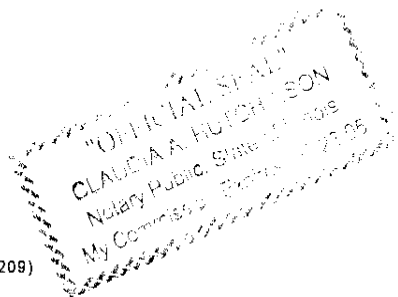 "OFFICIAL SEAL"
CLAUDIA A. HUTCH SON
Notary Public, State ois
My Commission
209)